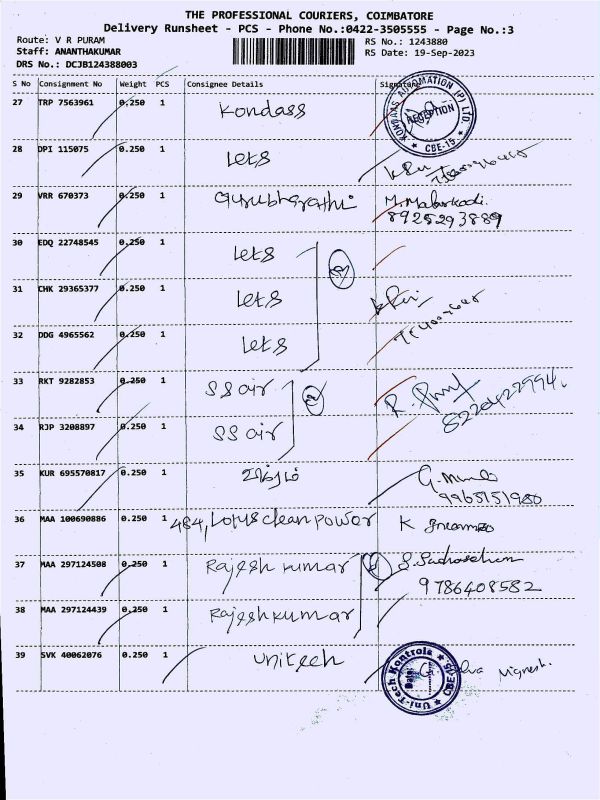 THE PROFESSIONAL COURIERS, COIMBATORE
Delivery Runsheet - PCS - Phone No.:0422-3505555 - Page No.:3
Route: V R PURAM RS No.: 1243880
Staff: ANANTHAKUMAR RS Date: 19-Sep-2023
DRS No.: DCJB124388003
S No Consignment No Weight PCS Consignee Details Signature
27 TRP 7563961 0.250 1 Kondass
KONDAAS AUTOMATION (P) LTD. RECEPTION CBE-15
28 DPI 115075 0.250 1 Lets
29 VRR 670373 0.250 1 Gurubharathi M. Malarkodi.
8925293889
30 EDQ 22748545 0.250 1 Lets 3
31 CHK 29365377 0.250 1 Lets
32 DDG 4965562 0.250 1 Lets
33 RKT 9282853 0.250 1 SS air 2 R.
8220422994.
34 RJP 3208897 0.250 1 SS air
35 KUR 695570817 0.250 1 G.
9965151980
36 MAA 100690886 0.250 1 484, Lotus clean power K
37 MAA 297124508 0.250 1 Rajesh kumar 2 S.
9786408582
38 MAA 297124439 0.250 1 Rajesh kumar
39 SVK 40062076 0.250 1 Unitech Vignesh.
Uni-Tech Kontrols CBE Date: